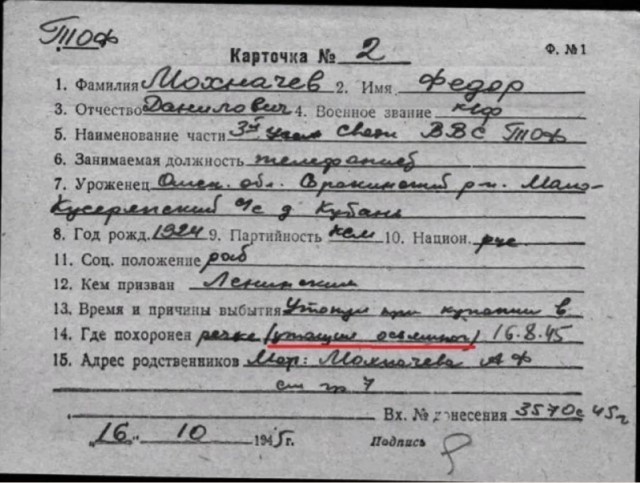 ТОФ
Карточка № 2
Ф. №1
1. Фамилия Мохначев 2. Имя Федор
3. Отчество Данилович 4. Военное звание кмф
5. Наименование части 3й узел связи ВВС ТОФ
6. Занимаемая должность телефонист
7. Уроженец Омск. обл. р-н. Мало-
с/с д Кубань
8. Год рожд. 1924 9. Партийность ксм 10. Национ. рус
11. Соц. положение раб
12. Кем призван Ленинским
13. Время и причины выбытия Утонул при купании в
14. Где похоронен речке (утащил осьминог) 16.8.45
15. Адрес родственников Мохначева А Ф
ст гр 7
Вх. № донесения 3570с 45г
„16" 10 1945г.
Подпись